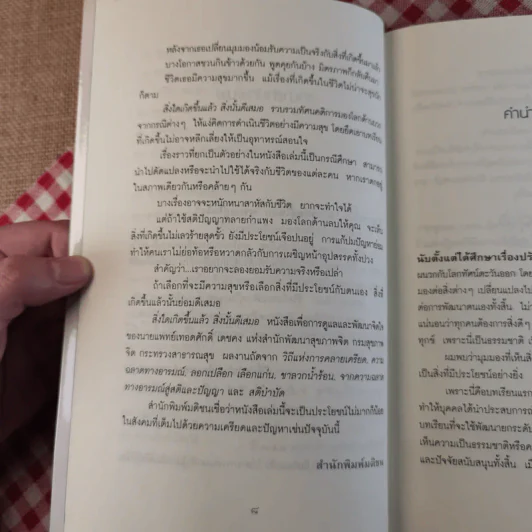 หลังจากเธอเปลี่ยนมุมมองน้อมรับความเป็นจริงกับสิ่งที่เกิดขึ้นมาแล้ว
บางโอกาสชวนกินข้าวด้วยกัน พูดคุยกันบ้าง มิตรภาพก็กลับคืนมา
ชีวิตเธอมีความสุขมากขึ้น แม้เรื่องที่เกิดขึ้นในชีวิตไม่น่าจะสุขนัก
ก็ตาม
สิ่งใดเกิดขึ้นแล้ว สิ่งนั้นดีเสมอ รวบรวมทัศนคติการมองโลกด้านบวก
จากกรณีต่างๆ ให้แง่คิดการดำเนินชีวิตอย่างมีความสุข โดยยึดเอาบทเรียน
ที่เกิดขึ้นไม่อาจหลีกเลี่ยงให้เป็นอุทาหรณ์สอนใจ
เรื่องราวที่ยกเป็นตัวอย่างในหนังสือเล่มนี้เป็นกรณีศึกษา สามารถ
นำไปดัดแปลงหรือจะนำไปใช้ได้จริงกับชีวิตของแต่ละคน หากเราตกอยู่
ในสภาพเดียวกันหรือคล้ายๆ กัน
บางเรื่องอาจจะหนักหนาสาหัสกับชีวิต ยากจะทำใจได้
แต่ถ้าใช้สติปัญญาทลายกำแพง มองโลกด้านลบให้คุณ จะเห็น
สิ่งที่เกิดขึ้นไม่เลวร้ายสุดขั้ว ยังมีประโยชน์เจือปนอยู่ การแก้ปมปัญหาย่อม
ทำให้คนเราไม่ย่อท้อหรือหวาดกลัวกับการเผชิญหน้าอุปสรรคทั้งปวง
สำคัญว่า...เราอยากจะลองยอมรับความจริงหรือเปล่า
ถ้าเลือกที่จะมีความสุขหรือเลือกสิ่งที่มีประโยชน์กับตนเอง สิ่งที่
เกิดขึ้นแล้วนั้นย่อมดีเสมอ
สิ่งใดเกิดขึ้นแล้ว สิ่งนั้นดีเสมอ หนังสือเพื่อการดูแลและพัฒนาจิตใจ
ของนายแพทย์เทอดศักดิ์ เดชคง แห่งสำนักพัฒนาสุขภาพจิต กรมสุขภาพ
จิต กระทรวงสาธารณสุข ผลงานถัดจาก วิถีแห่งการคลายเครียด, ความ
ฉลาดทางอารมณ์, ลอกเปลือก เลือกแก่น, ชาลวกน้ำร้อน, จากความฉลาด
ทางอารมณ์สู่สติและปัญญา และ สติบำบัด
สำนักพิมพ์มติชนเชื่อว่าหนังสือเล่มนี้จะเป็นประโยชน์ไม่มากก็น้อย
ในสังคมที่เต็มไปด้วยความเครียดและปัญหาเช่นปัจจุบันนี้
สำนักพิมพ์มติชน
๘
คำนำ
นับตั้งแต่ได้ศึกษาเรื่องปรั
ผนวกกับโลกทัศน์ตะวันออก โดย
มองต่อสิ่งต่างๆ เปลี่ยนแปลงไป
ต่อการพัฒนาตนเองทั้งสิ้น ไม่
แน่นอนว่าทุกคนต้องการสิ่งดีๆ
ทุกข์ เพราะนี่เป็นธรรมชาติ เ
ผมพบว่ามุมมองที่เห็นสิ่
เป็นสิ่งที่มีประโยชน์อย่างยิ่ง
เพราะนี่คือบทเรียนแรก
ทำให้บุคคลได้นำประสบการ
บทเรียนที่จะใช้พัฒนายกระดับ
เห็นความเป็นธรรมชาติหรือค
และปัจจัยสนับสนุนทั้งสิ้น เมื่